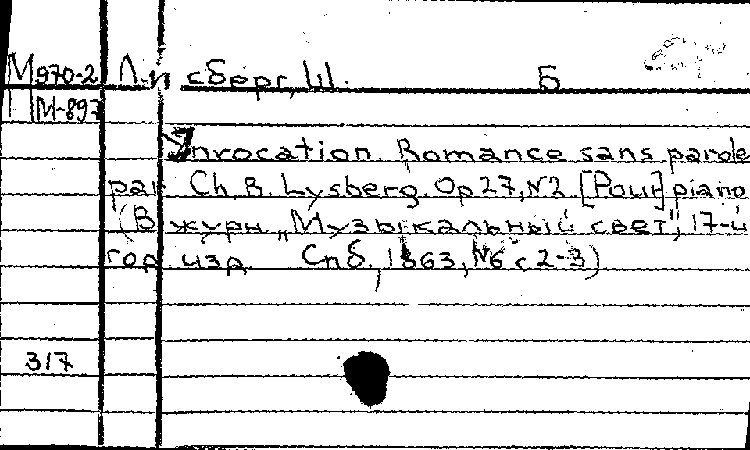 М970-2 Лисберг, Ш. Б
М-897
Invocation Romance sans parole
par Ch. B. Lysberg. Op 27, N2 [Pour] piano
(В журн „Музыкальный свет", 17-й
год изд Спб., 1863, №6 с 2-3)
317